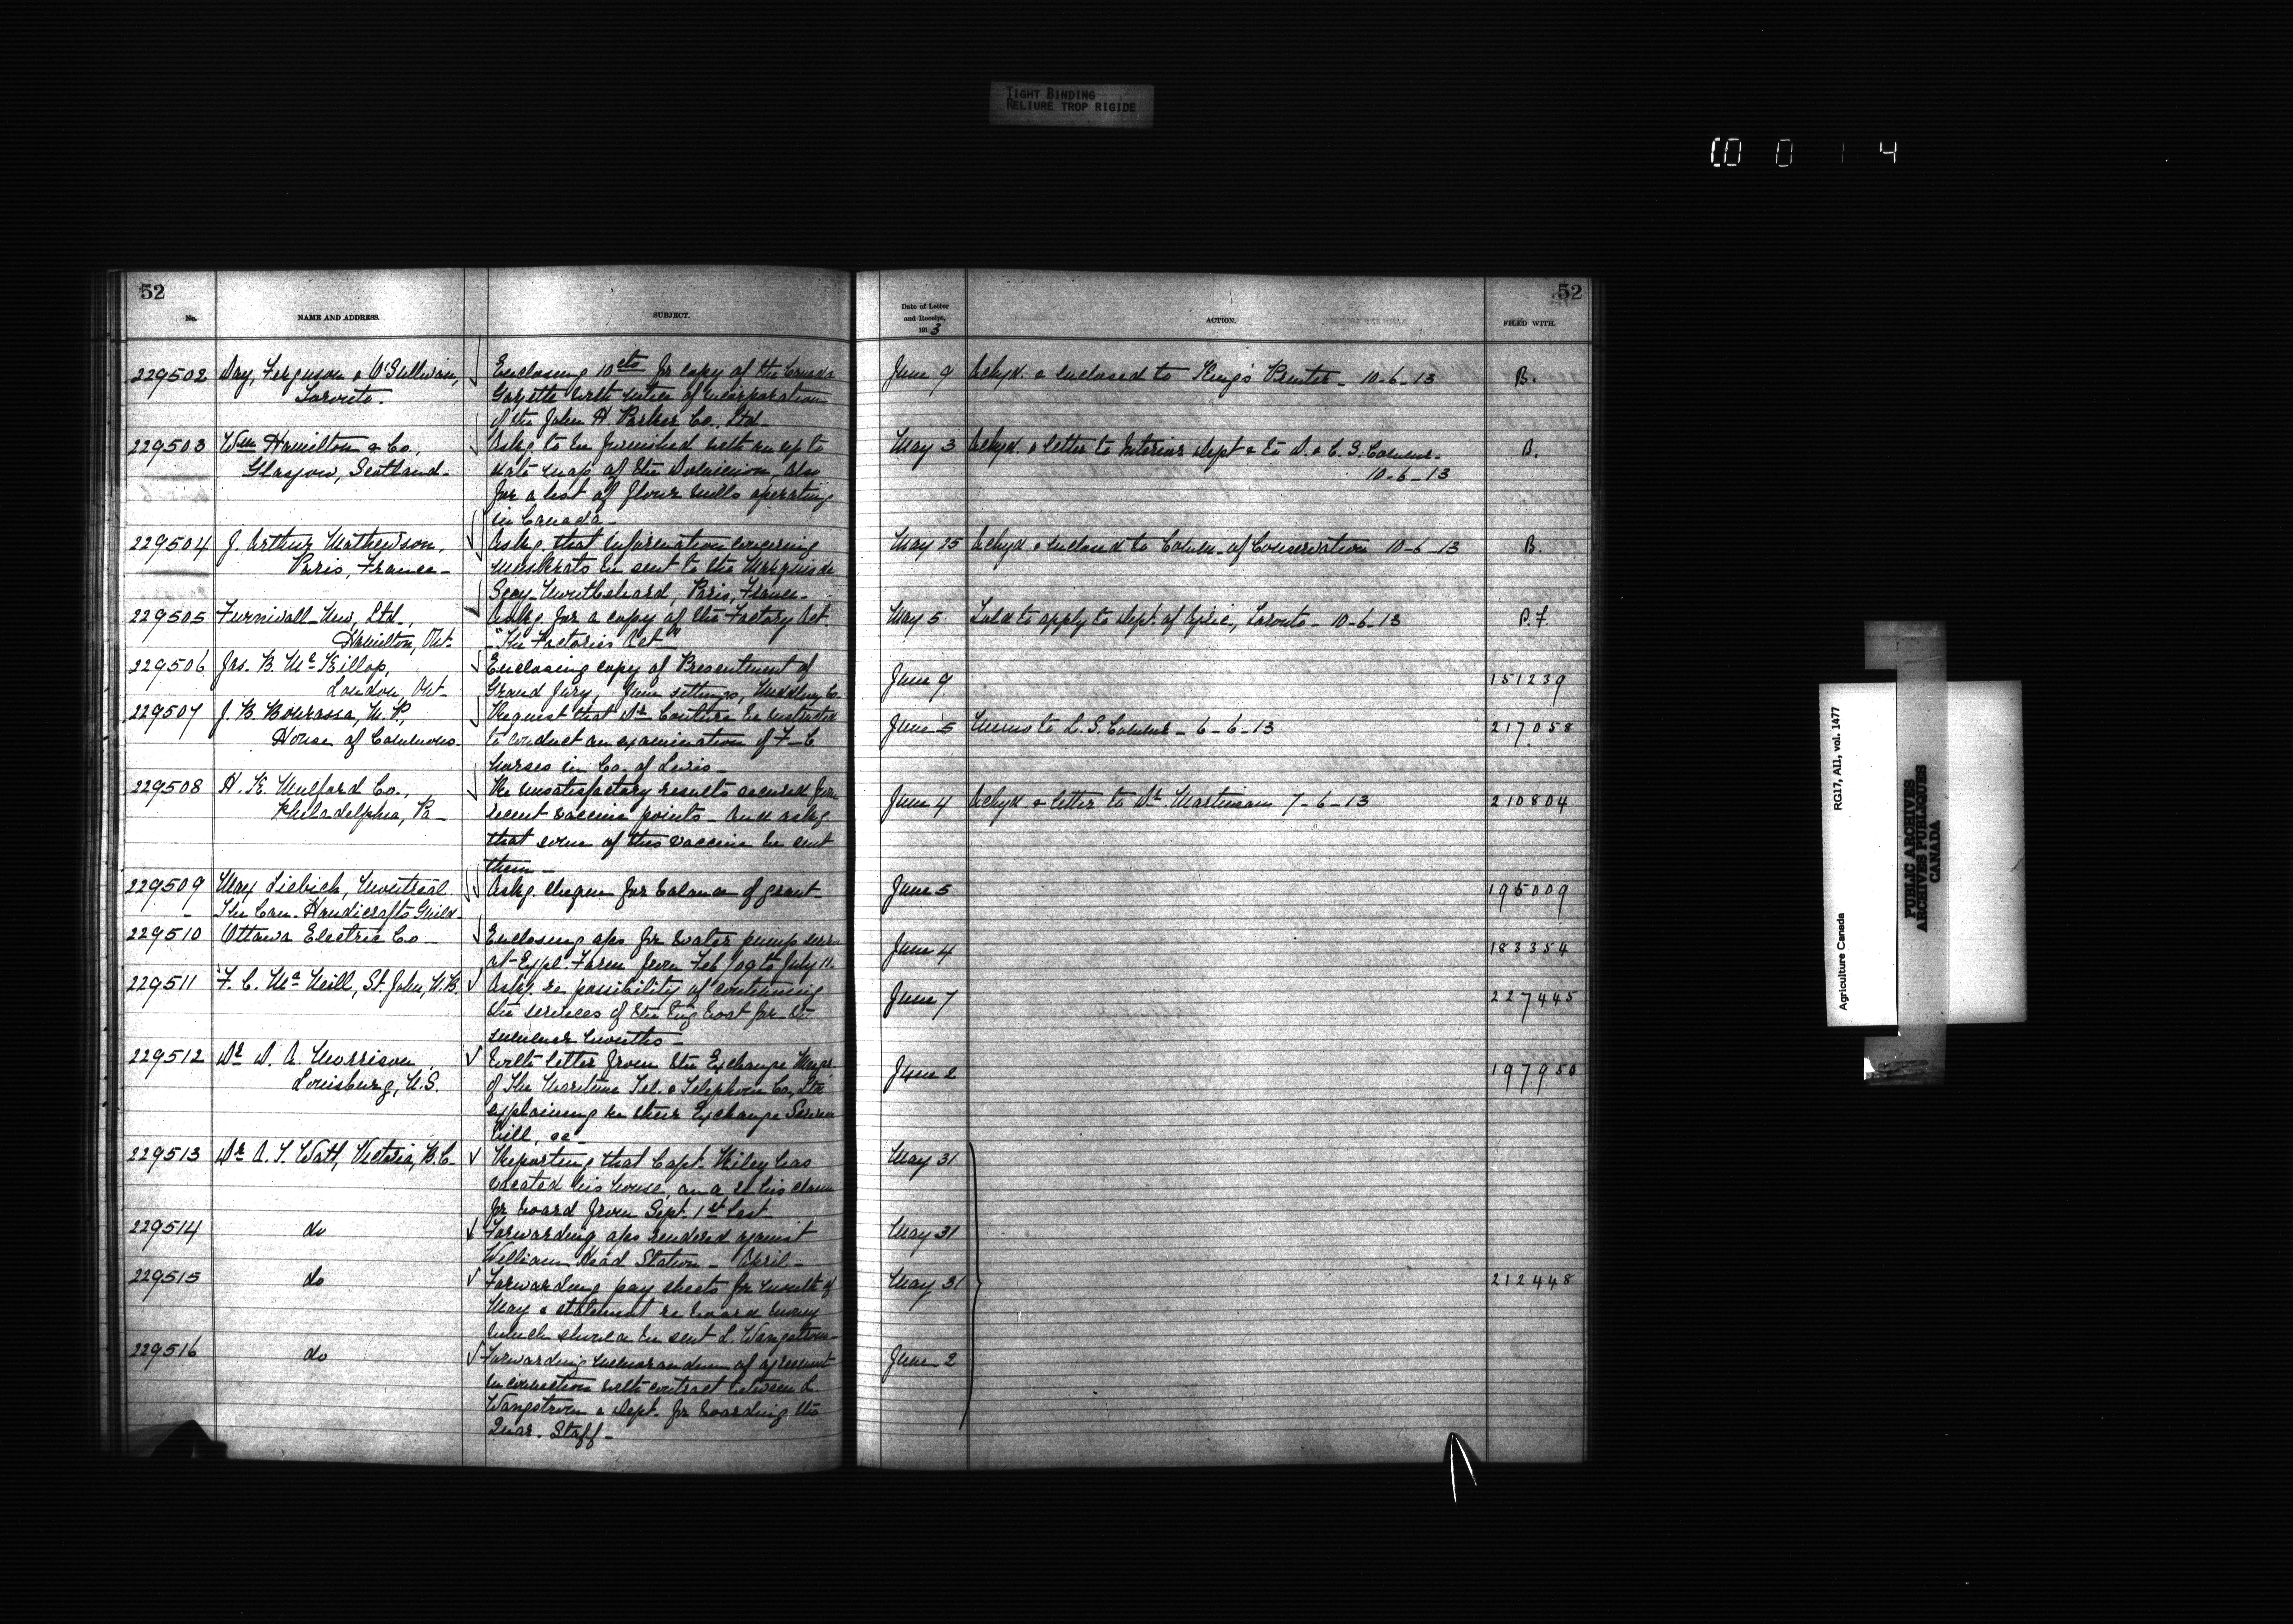 TIGHT BINDING
RELIURE TROP RIGIDE
0 0 1 4
52
No.
NAME AND ADDRESS.
SUBJECT.
229502 Day, Ferguson & O'Sullivan, Enclosing 10cts for copy of the Canada
Toronto. Gazette with notice of incorporation
of the John H Parker Co., Ltd-
229503 Wm Hamilton & Co., Askg. to be furnished with an up to
Glasgow, Scotland- date map of the Dominion, also
for a list of flour mills operating
in Canada-
229504 J. Arthur Mathewson, Askg. that information concerning
Paris, France- muskrats be sent to the Marquis de
Paris, France-
229505 Furnivall-New, Ltd., Askg. for a copy of the Factory Act.
Hamilton, Ont. "The Factories Act"
229506 Jas. B. McKillop, Enclosing copy of Presentment of
London, Ont- Grand Jury, June sittings, Middlesex Co.
229507 J. B. Bourassa, M.P., Request that Dr Couture be instructed
House of Commons- to conduct an examination of F-C
horses in Co. of Levis-
229508 H. K. Mulford Co., Re unsatisfactory results secured from
Philadelphia, Pa- recent vaccine points- and askg.
that some of this vaccine be sent
them-
229509 Max Liebich, Montreal Askg. cheque for balance of grant-
The Can. Handicrafts Guild-
229510 Ottawa Electric Co- Enclosing a/cs for water pump service
at Expl. Farm from Feb /09 to July 11.
229511 F. C. McNeill, St. John, N.B. Askg. re possibility of continuing
the services of the tug boat for the
summer months-
229512 Dr D. A. Morrison, With letter from the Exchange Mangr.
Louisburg, N.S. of The Maritime Tel. & Telephone Co, Ltd
explaining re their Exchange Service
bill, &c-
229513 Dr A. T. Watt, Victoria, B.C- Reporting that Capt. Riley has
vacated his house, and re his claim
for board from Sept. 1st last
229514 do Forwarding a/cs rendered against
William Head Station- April-
229515 do Forwarding pay sheets for month of
May & statement re board money
which should be sent L. Wangstrom-
229516 do Forwarding memorandum of agreement
in connection with contract between L.
Wangstrom & Dept. for boarding the
Quar. Staff-
52
Date of Letter
and Receipt,
1913
ACTION.
FILED WITH.
June 9 Ackgd. & enclosed to King's Printer- 10-6-13 B.
May 3 Ackgd. & letter to Interior Dept & to D. & C. S. Commr.
10-6-13 B.
May 25 Ackgd & enclosed to Comm. of Conservation 10-6-13 B.
May 5 Told to apply to Dept. of Agric., Toronto- 10-6-13 P.F.
June 9 151239
June 5 Memo to L. S. Commr- 6-6-13 217058
June 4 Ackgd. & letter to Dr. Martineau 7-6-13 210804
June 5 195009
June 4 183354
June 7 227445
June 2 197950
May 31
May 31
May 31 212448
June 2
Agriculture Canada RG17, AII, vol. 1477
PUBLIC ARCHIVES
ARCHIVES PUBLIQUES
CANADA